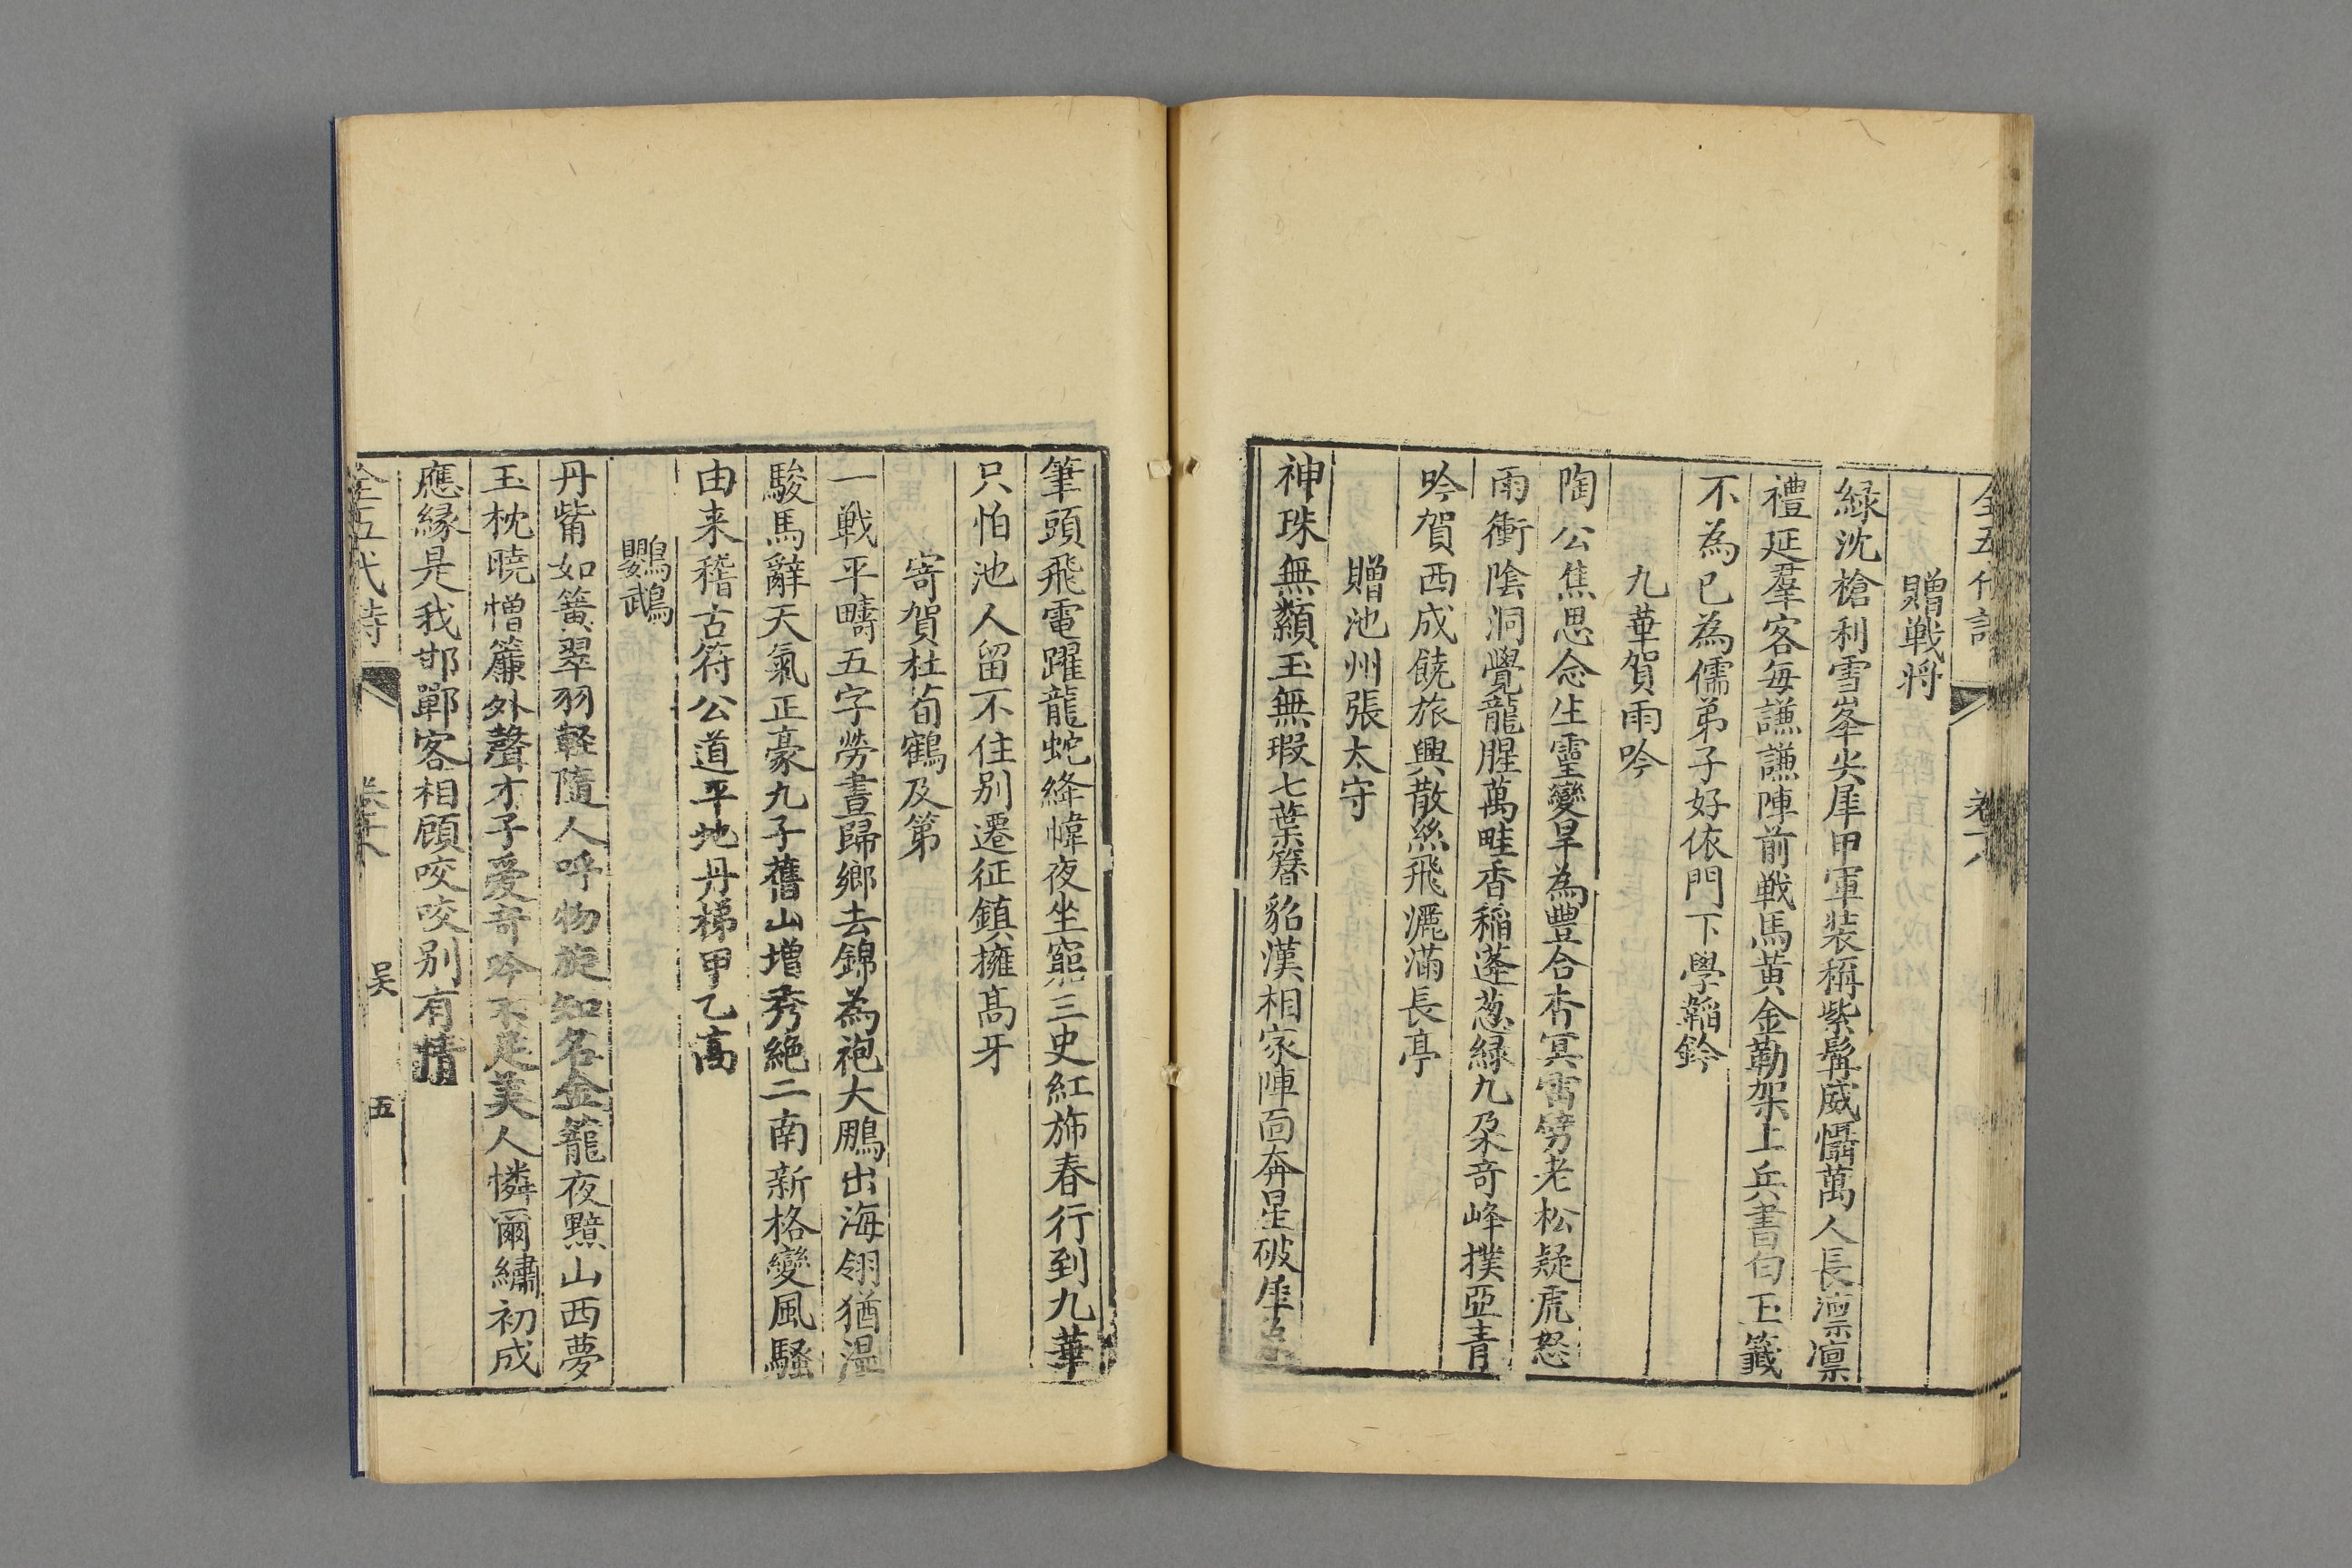 全五代詩 卷十八
贈戦将
緑沈槍利雪峯尖犀甲軍装稱紫髯威懾萬人長凛凛
禮延羣客每謙謙陣前戦馬黄金勒架上兵書白玉籤
不為已為儒弟子好依門下學韜鈐
九華賀雨吟
陶公焦思念生靈變旱為豐合杳冥雷劈老松疑虎怒
雨衝陰洞覺龍腥萬畦香稲蓬葱緑九朶奇峰撲亞青
吟賀西成饒旅興散絲飛灑滿長亭
贈池州張太守
神珠無纇玉無瑕七葉簪貂漢相家陣面奔星破犀象
筆頭飛電躍龍蛇絳幃夜坐窮三史紅斾春行到九華
只怕池人留不住别遷征鎮擁髙牙
寄賀杜荀鶴及第
一戦平疇五字勞晝歸鄉去錦為袍大鵬出海翎猶濕
駿馬辭天氣正豪九子舊山增秀絶二南新格變風騷
由来稽古符公道平地丹梯甲乙高
鸚鵡
丹觜如簧翠羽軽隨人呼物旋知名金籠夜黯山西夢
玉枕曉憎簾外聲才子愛奇吟不足美人憐爾繡初成
應縁是我邯鄲客相顧咬咬别有情
全五代詩 卷十八 吴 五